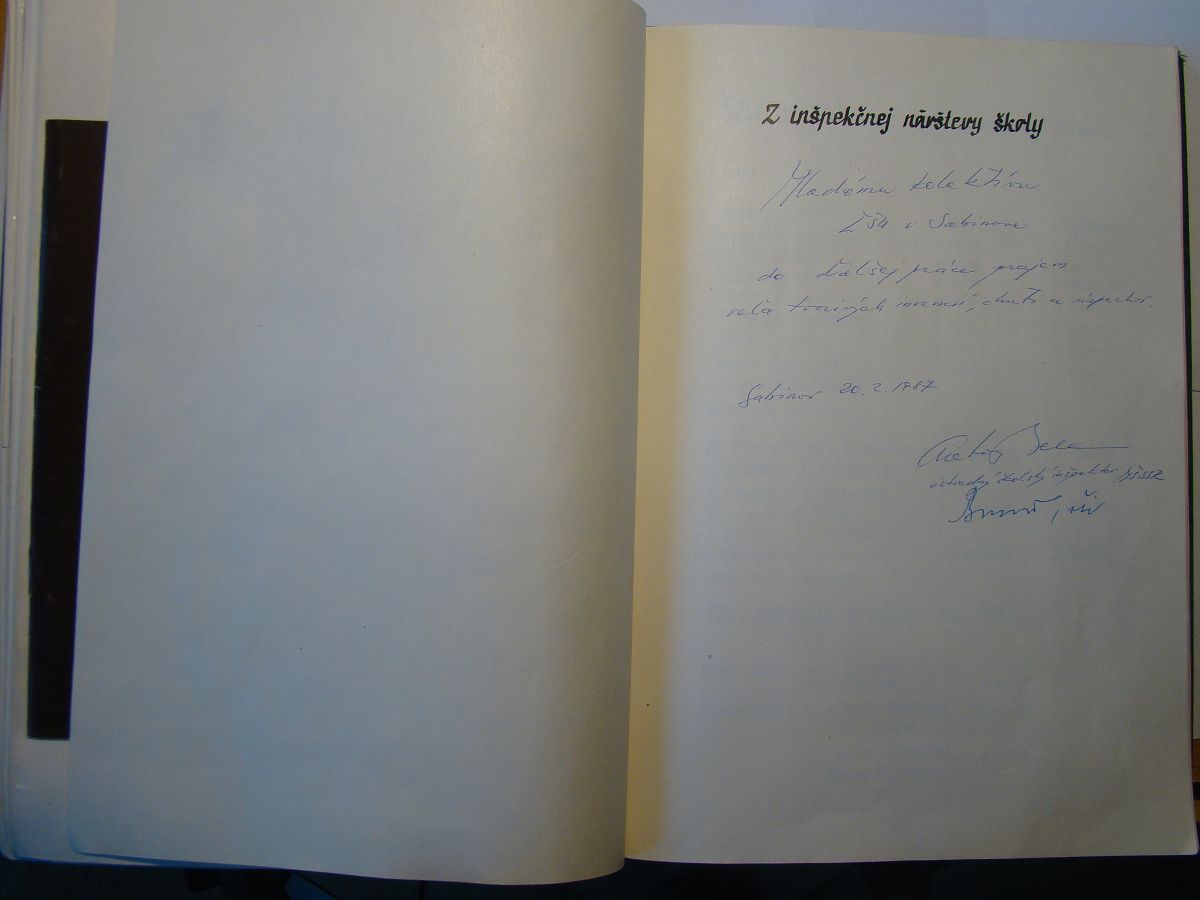 Z inšpekčnej návštevy školy
Mladému kolektívu
ĽŠU v Sabinove
do ďalšej práce prajem
veľa tvorivých invencií, chuti a úspechov.
Sabinov 20.2.1987
ústredný školský inšpektor